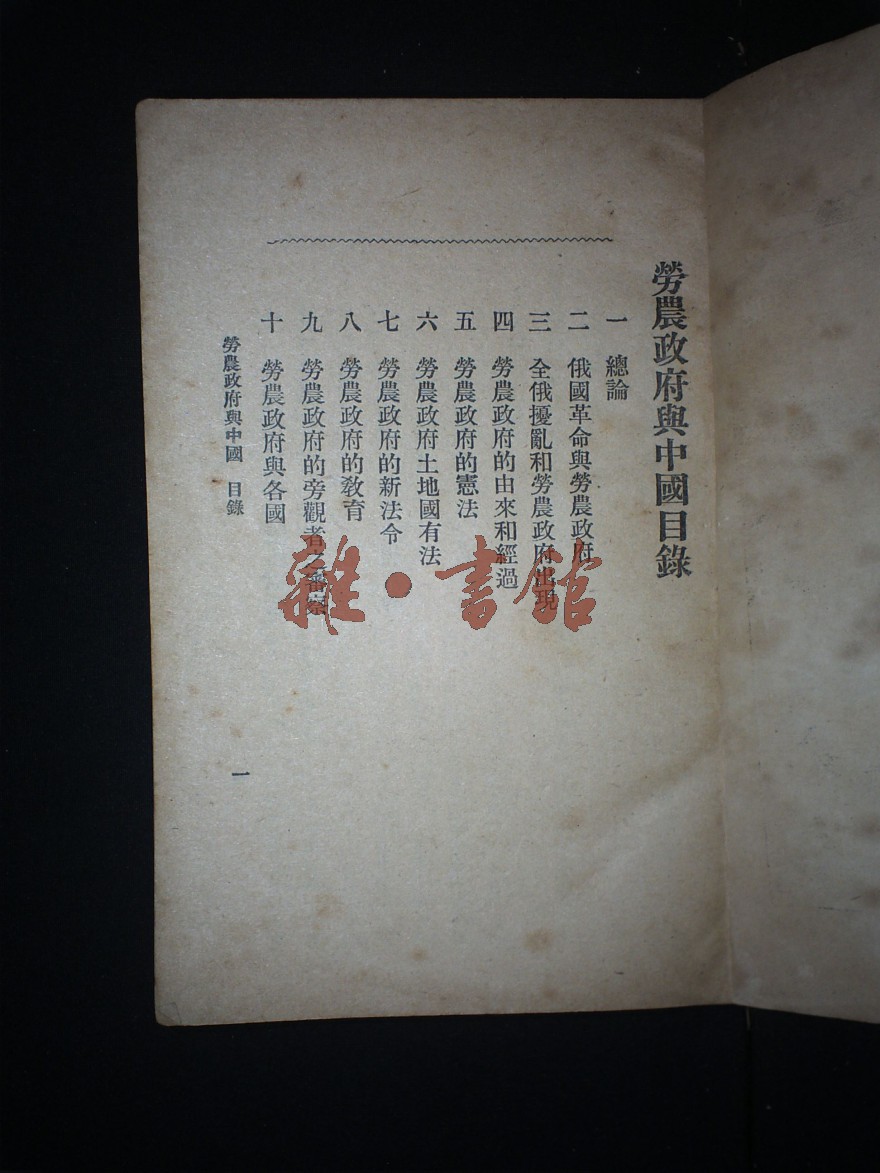 勞農政府與中國目錄
一 總論
二 俄國革命與勞農政府
三 全俄擾亂和勞農政府出現
四 勞農政府的由來和經過
五 勞農政府的憲法
六 勞農政府土地國有法
七 勞農政府的新法令
八 勞農政府的教育
九 勞農政府的旁觀者之審察
十 勞農政府與各國
勞農政府與中國 目錄
一
雜·書館